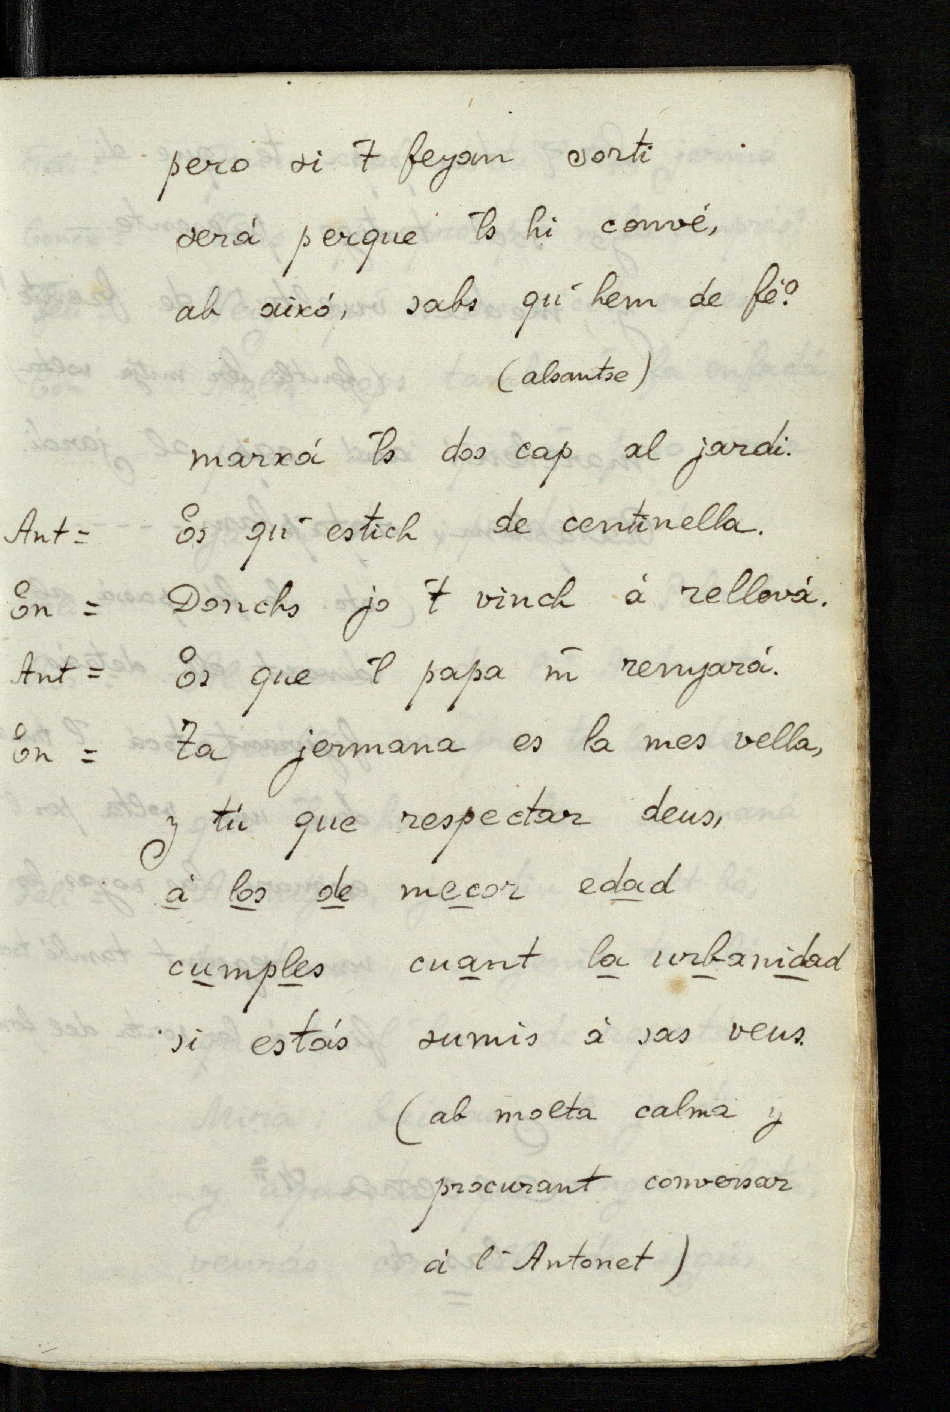 pero si 't feyan sorti
será perque 'ls hi convé,
ab aixó, sabs qu' hem de fé?
(alsantse)
marxá 'ls dos cap al jardi.
Ant = Es qu' estich de centinella.
En = Donchs jo 't vinch á rellevá.
Ant = Es que 'l papa m' renyará.
En = Ta jermana es la mes vella,
y tú que respectar deus,
á los de mecor edad
cumples cuant la urbanidad
si estás sumis á sas veus.
(ab molta calma y
procurant conversar
á l' Antonet)